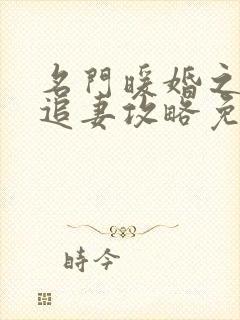 名門暖婚之
追妻攻略免
時今